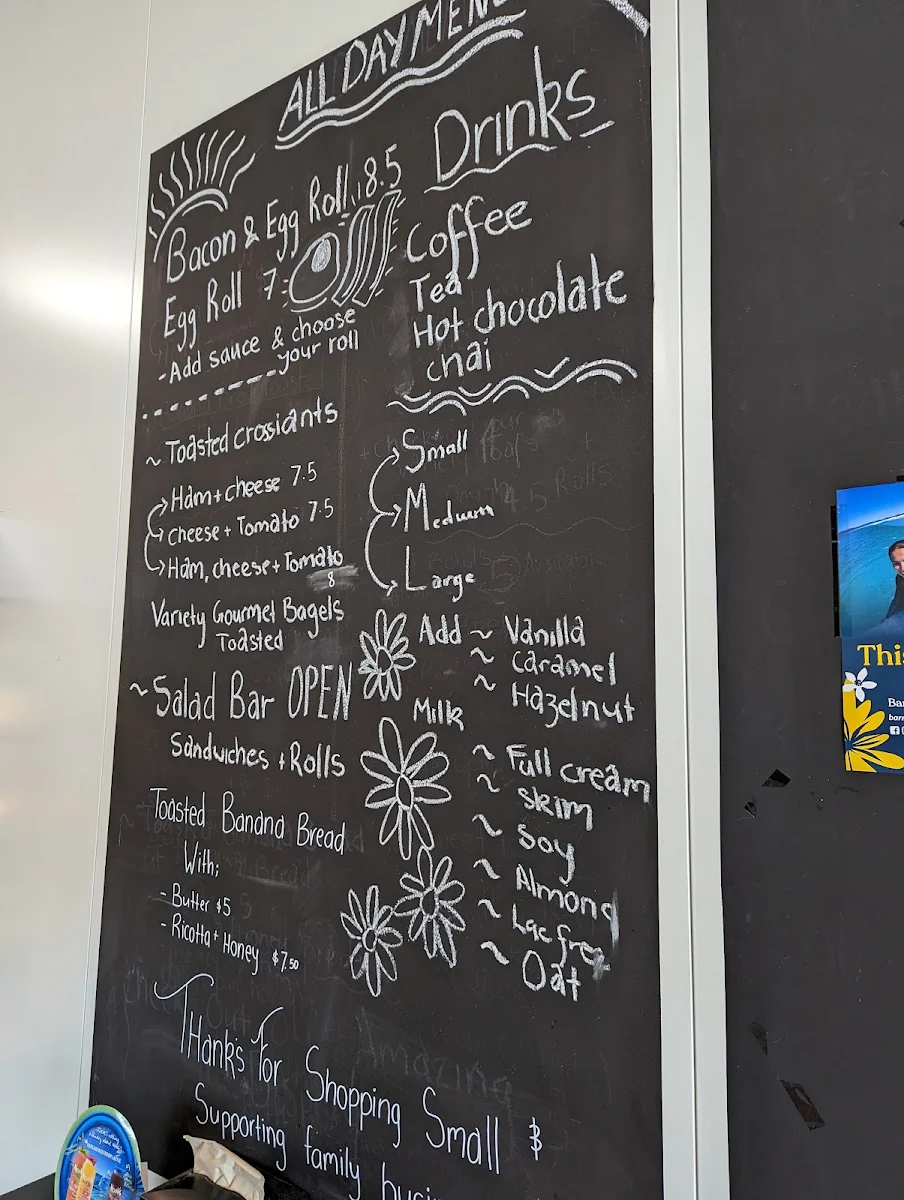 ALL DAY MENU
Bacon & Egg Roll 8.5
Egg Roll 7
-Add sauce & choose
your roll
~ Toasted crossiants
Ham + cheese 7.5
cheese + Tomato 7.5
Ham, cheese + Tomato
8
Variety Gourmel Bagels
Toasted
~ Salad Bar OPEN
Sandwiches + Rolls
Toasted Banana Bread
With;
- Butter $5
- Ricotta + Honey $7.50
Drinks
Coffee
Tea
Hot chocolate
chai
Small
Medium
Large
Add ~ Vanilla
~ caramel
~ Hazelnut
Milk
~ Full cream
~ skim
~ Soy
~ Almond
~ Lac free
~ Oat
THanks for Shopping Small &
Supporting family busi
This
Bar
barr